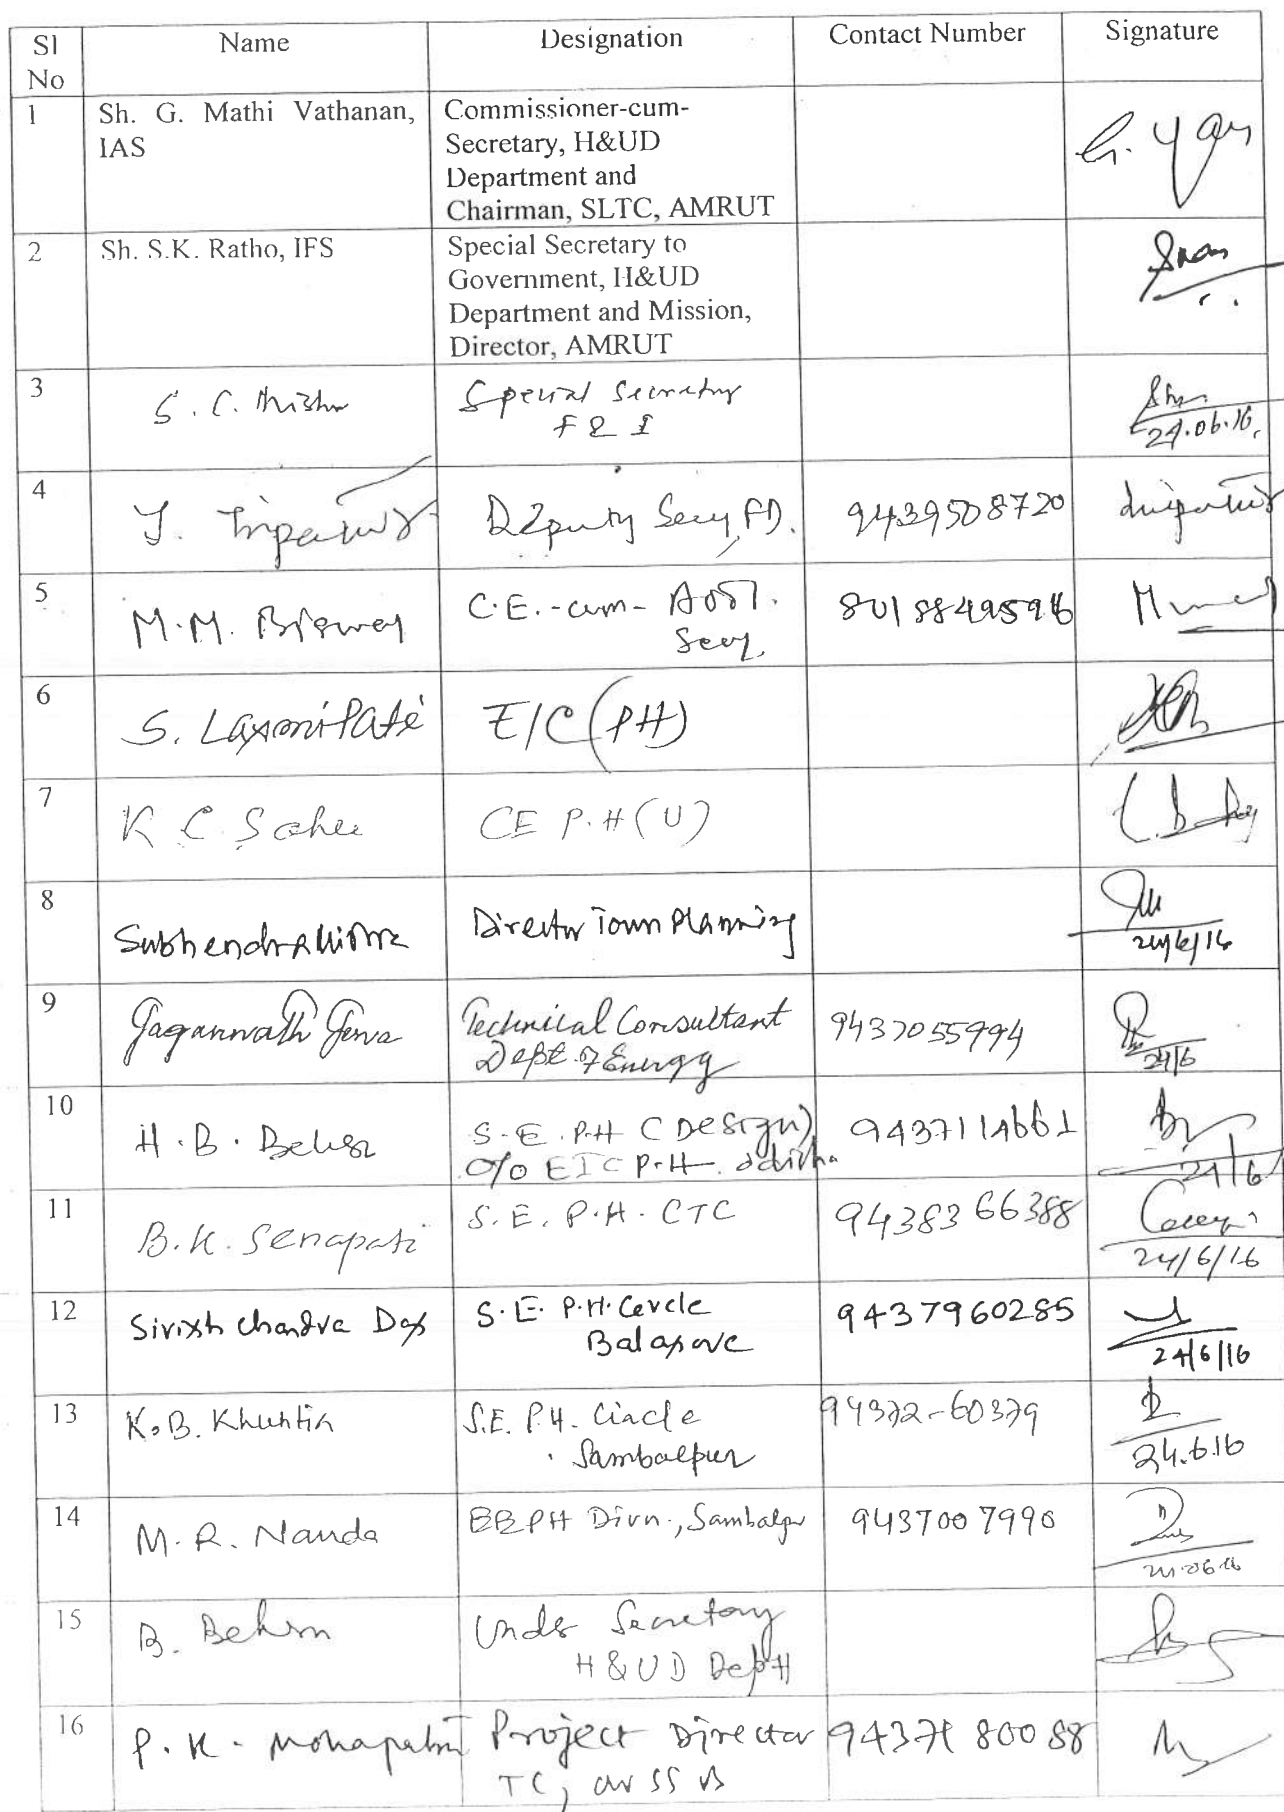 Sl No Name Designation Contact Number Signature
1 Sh. G. Mathi Vathanan, IAS Commissioner-cum-
Secretary, H&UD
Department and
Chairman, SLTC, AMRUT
2 Sh. S.K. Ratho, IFS Special Secretary to
Government, H&UD
Department and Mission,
Director, AMRUT
3 S. C. Mishra Special Secretary
F & I
24.06.16
4 J. Tripathy Deputy Secy, FD. 9439508720
5 M.M. Biswal C.E.-cum- Addl.
Secy.
6 S. Laxmipati E/C (PH)
7 K C Sahu CE P.H (U)
8 Subhendra Mishra Director Town Planning
24/6/16
9 Jagannath Jena Technical Consultant 9437055994
Dept. of Energy
24/6
10 H. B. Behera S.E. P.H (Design) 9437114661
O/o EIC P.H. Odisha
24/6
11 B.K. Senapati S.E. P.H. CTC 9438366388
24/6/16
12 Sirish Chandra Das S.E. P.H. Cercle 9437960285
Balasore
24/6/16
13 K.B. Khuntia S.E. P.H. Circle 94372-60379
Sambalpur
24.6.16
14 M. R. Nanda EEPH Divn., Sambalpur 9437007990
15 B. Behera Under Secretary
H & UD Deptt
16 P. K. Mohapatra Project Director
TC,